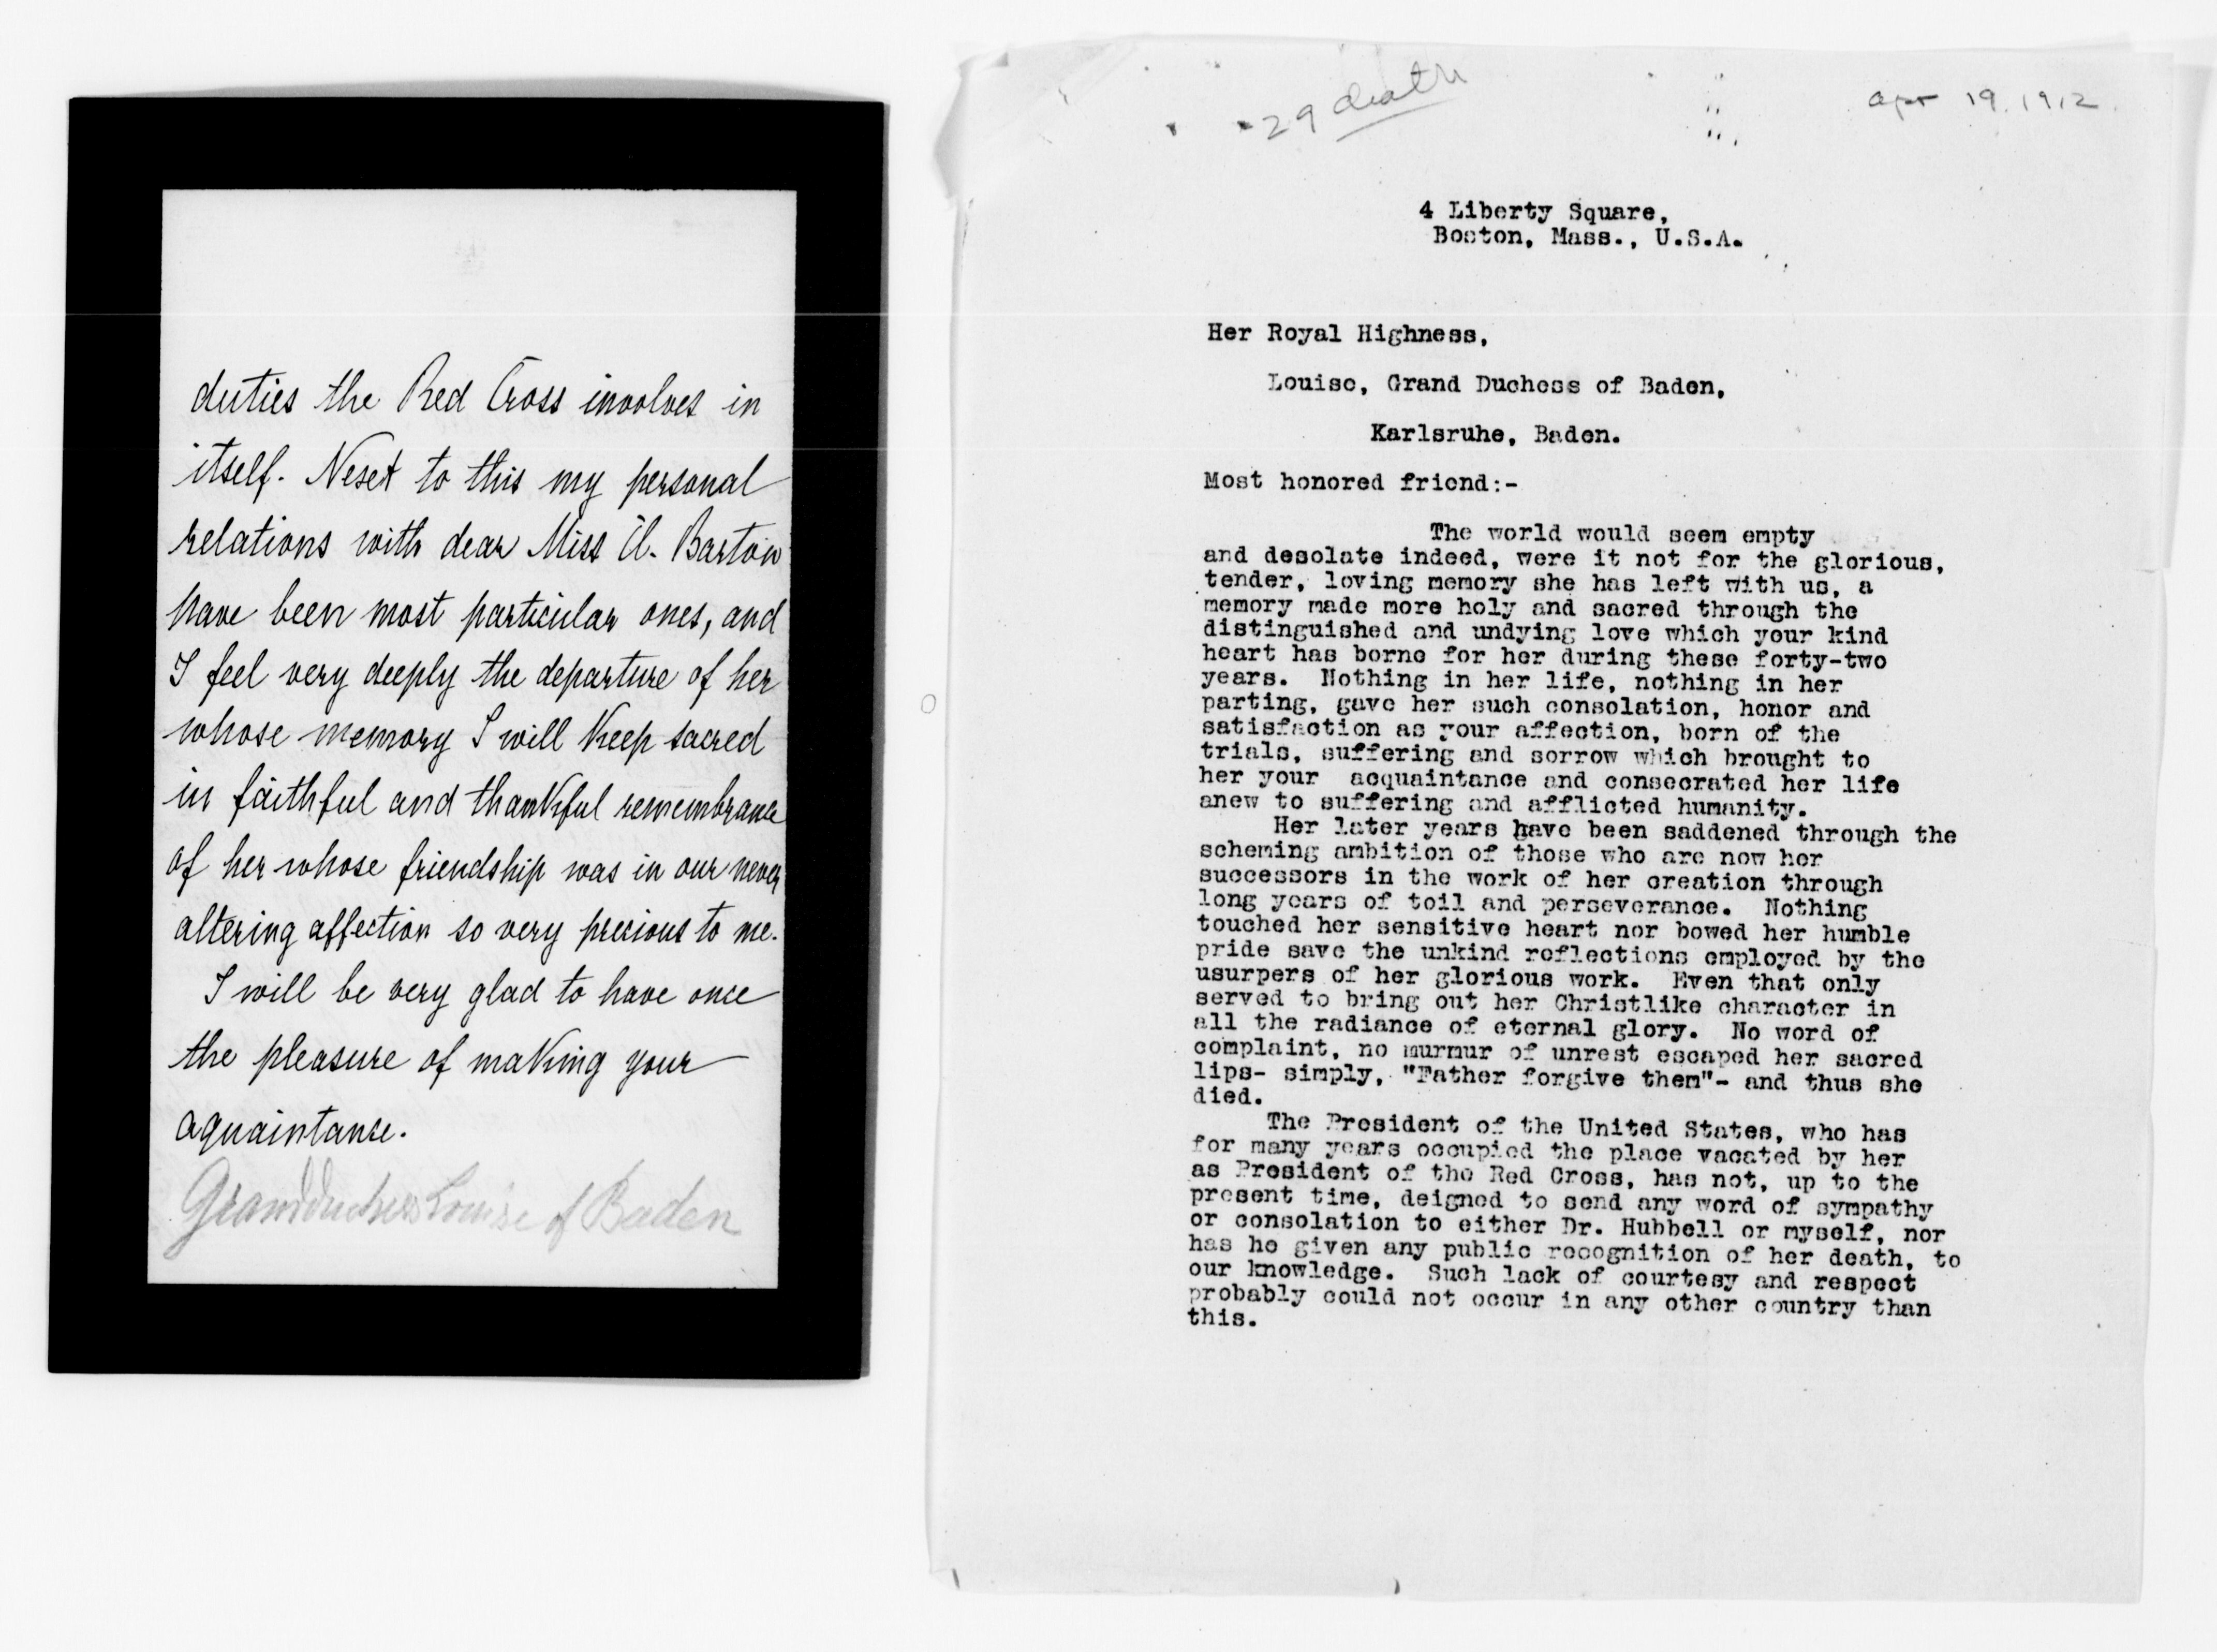 duties the Red Cross involves in
itself. Nesct to this my personal
relations with dear Miss Cl. Barton
have been most particular ones, and
I feel very deeply the departure of her
whose memory I will keep sacred
in faithful and thankful remembrance
of her whose friendship was in our never
altering affection so very precious to me.
I will be very glad to have once
the pleasure of making your
aquaintance.
Grandduchess Louise of Baden
29 death
apr 19. 1912.
4 Liberty Square,
Boston, Mass., U.S.A.
Her Royal Highness,
Louise, Grand Duchess of Baden,
Karlsruhe, Baden.
Most honored friend:-
The world would seem empty
and desolate indeed, were it not for the glorious,
tender, loving memory she has left with us, a
memory made more holy and sacred through the
distinguished and undying love which your kind
heart has borne for her during these forty-two
years. Nothing in her life, nothing in her
parting, gave her such consolation, honor and
satisfaction as your affection, born of the
trials, suffering and sorrow which brought to
her your acquaintance and consecrated her life
anew to suffering and afflicted humanity.
Her later years have been saddened through the
scheming ambition of those who are now her
successors in the work of her creation through
long years of toil and perseverance. Nothing
touched her sensitive heart nor bowed her humble
pride save the unkind reflections employed by the
usurpers of her glorious work. Even that only
served to bring out her Christlike character in
all the radiance of eternal glory. No word of
complaint, no murmur of unrest escaped her sacred
lips- simply, "Father forgive them"- and thus she
died.
The President of the United States, who has
for many years occupied the place vacated by her
as President of the Red Cross, has not, up to the
present time, deigned to send any word of sympathy
or consolation to either Dr. Hubbell or myself, nor
has he given any public recognition of her death, to
our knowledge. Such lack of courtesy and respect
probably could not occur in any other country than
this.